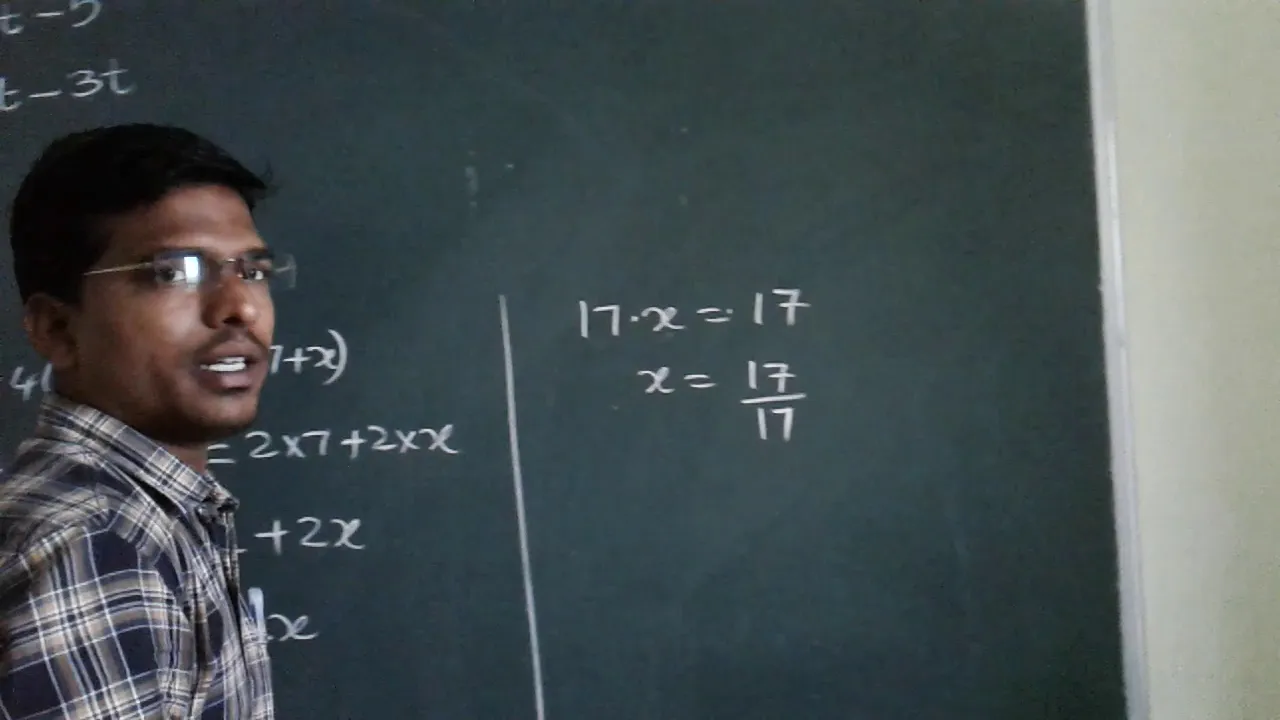 t - 5
t - 3t
4( 7+x)
= 2x7+2xx
+ 2x
x
17·x = 17
x = 17/17